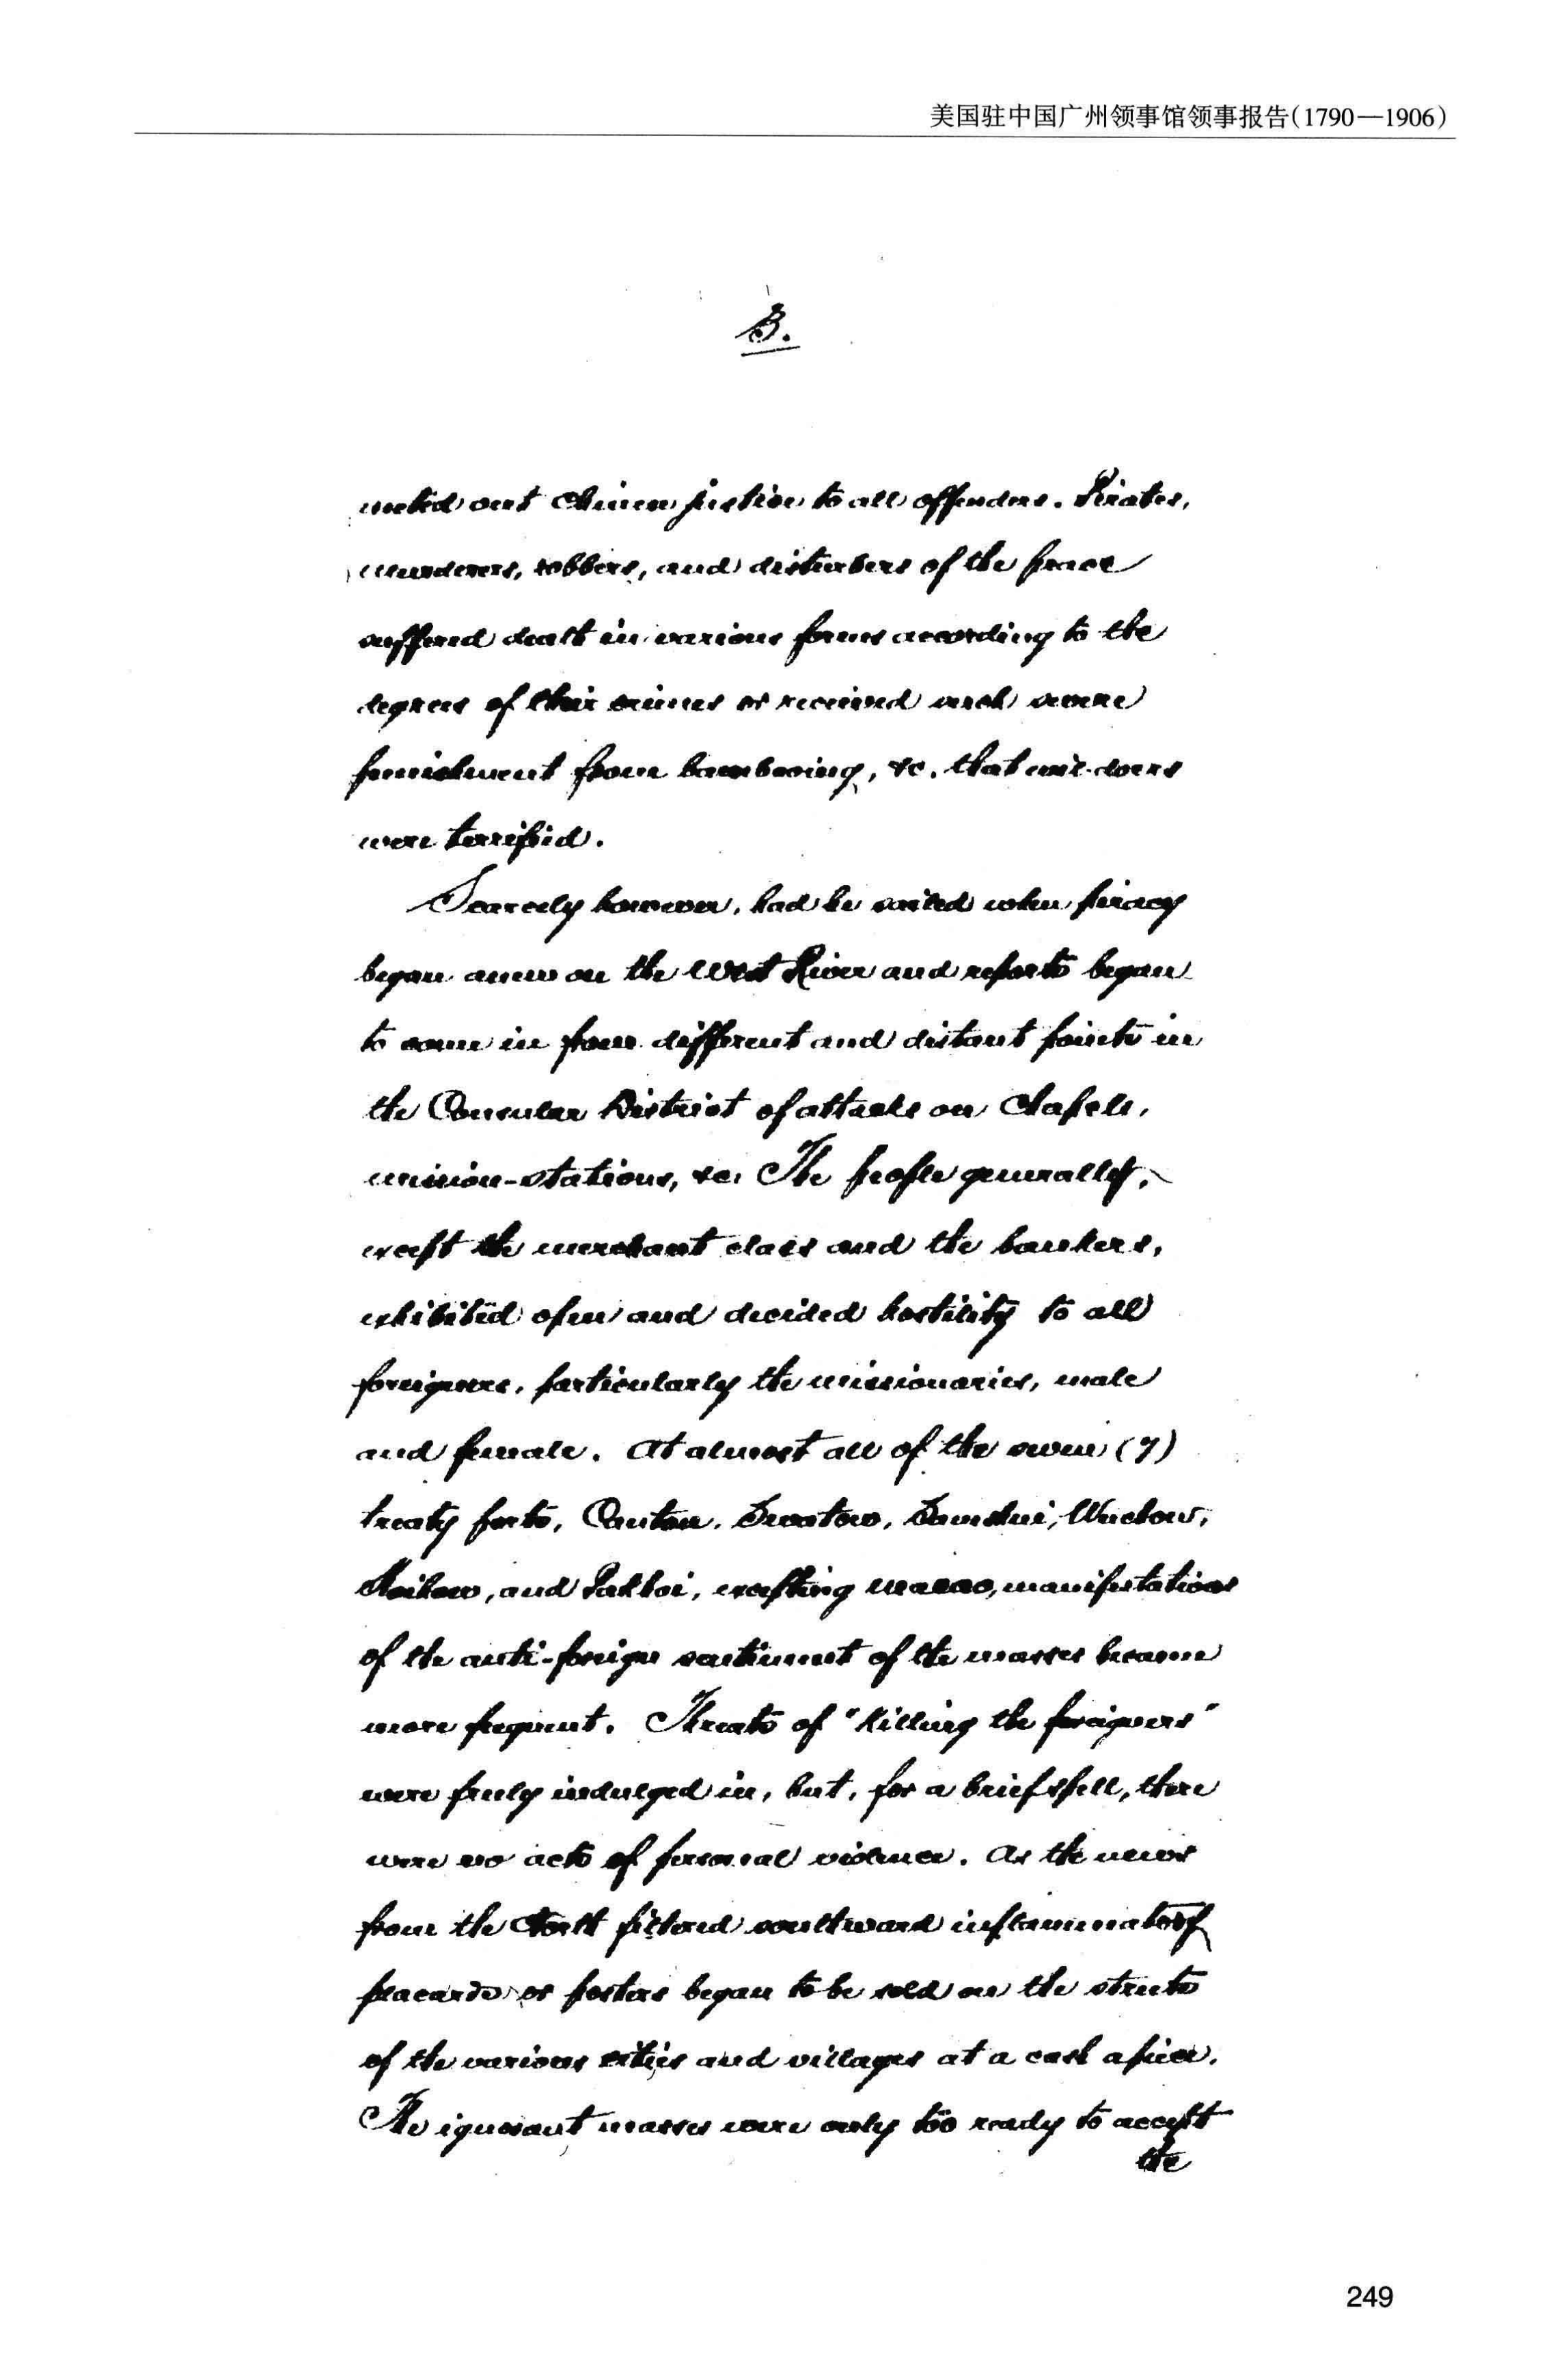 美国驻中国广州领事馆领事报告(1790—1906)
3.
meted out Chinese justice to all offenders. Pirates,
murderers, robbers, and disturbers of the peace
suffered death in various forms according to the
degrees of their crimes or received such severe
punishment from bambooing, &c. that evil-doers
were terrified.
Scarcely however, had he sailed when piracy
began anew on the West River and reports began
to come in from different and distant points in
the Consular District of attacks on Chapels,
mission-stations, &c. The people generally,
except the merchant class and the bankers,
exhibited open and decided hostility to all
foreigners, particularly the missionaries, male
and female. At almost all of the seven (7)
treaty ports, Canton, Swatow, Samshui, Wuchow,
Hoihow, and Pakhoi, excepting Macao, manifestations
of the anti-foreign sentiment of the masses became
more frequent. Threats of "killing the foreigners"
were freely indulged in, but, for a brief spell, there
were no acts of personal violence. As the news
from the North filtered southward inflammatory
placards or posters began to be sold on the streets
of the various cities and villages at a cash apiece.
The ignorant masses were only too ready to accept
the
249